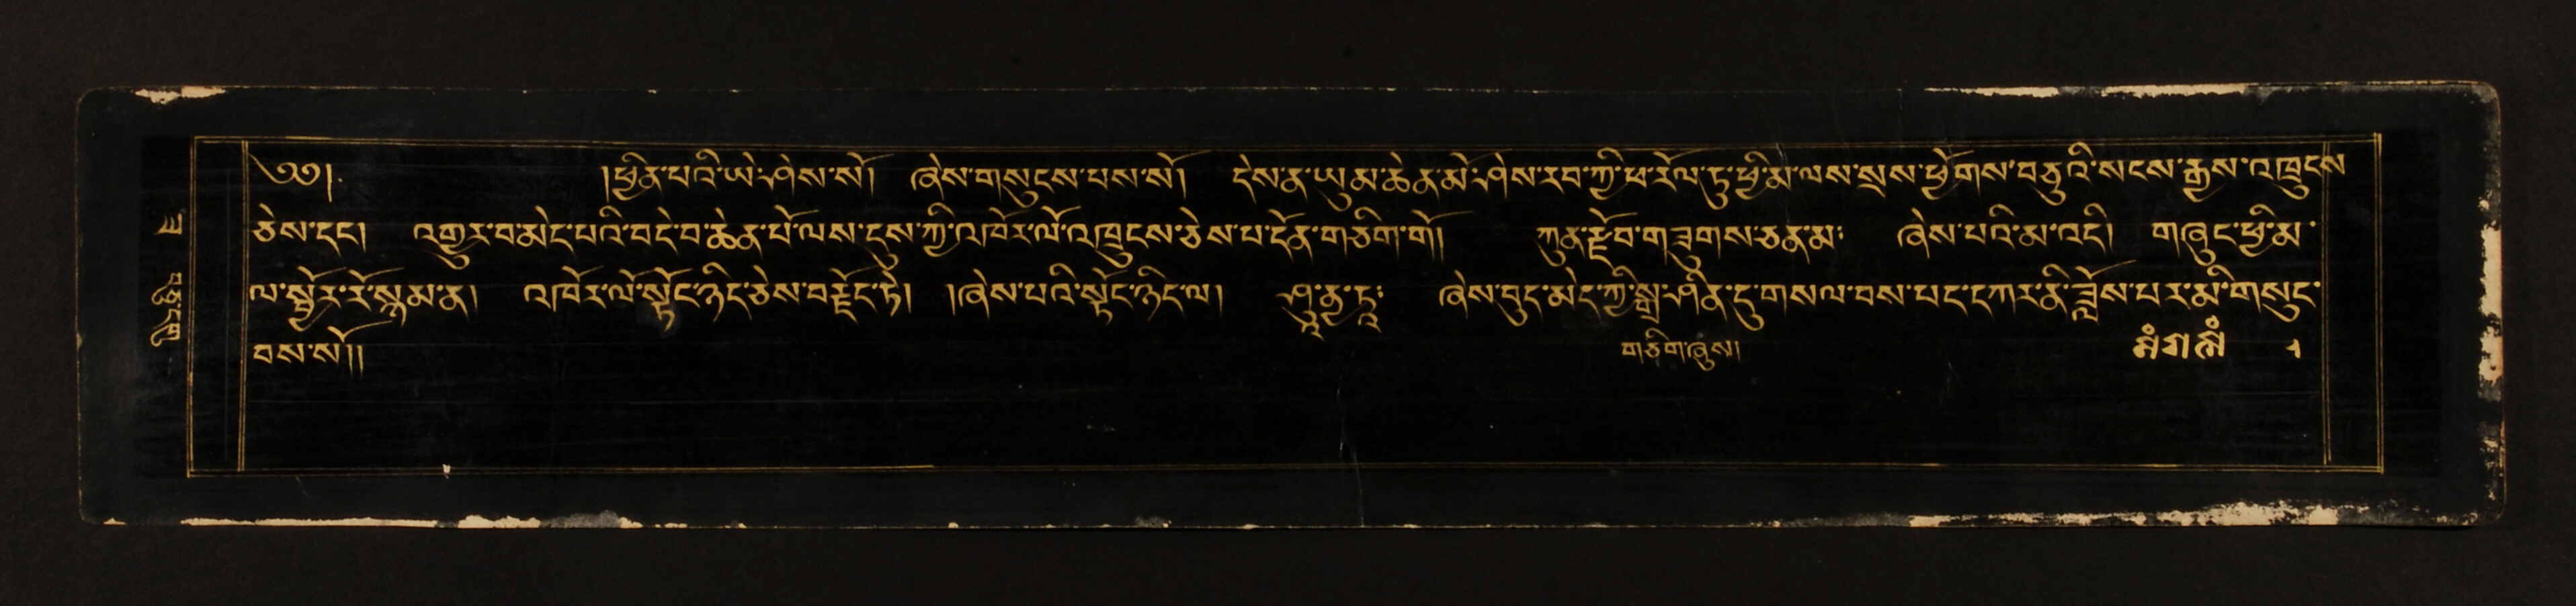 ༄༅། །ཕྱིན་པའི་ཡེ་ཤེས་སོ། ཞེས་གསུངས་པས་སོ། དེས་ན་ཡུམ་ཆེན་མོ་ཤེས་རབ་ཀྱི་ཕ་རོལ་ཏུ་ཕྱི་མ་ལས་སྲས་ཕྱོགས་བཅུའི་སངས་རྒྱས་འཁྲུངས
ཅེས་དང། འགྱུར་བམེད་པའི་བདེ་བ་ཆེན་པོ་ལས་དུས་ཀྱི་འཁོར་ལོ་འཁྲུངས་ཅེས་པ་དོན་གཅིག་གོ། ཀུན་རྫོབ་གཟུགས་ཅན་མ༔ ཞེས་པའི་མ་འདི། གཞུང་ཕྱི་མ་
ལ་སྦྱོར་རོ་སྙམ་ན། འཁོར་ལོ་སྟོང་ཉིད་ཅེས་བརྗོད་ཏེ། །ཞེས་པའི་སྟོང་ཉིད་ལ། ཤཱུ་ནྱ་ཏཱ༔ ཞེས་བུད་མེད་ཀྱི་སྒྲ་ཤིན་ཏུ་གསལ་བས་པང་དཀར་ནི་ཟློས་པར་མི་གསུང་
བས་སོ།། གཅིག་ཞུས། མཾ་ག་ལཾ